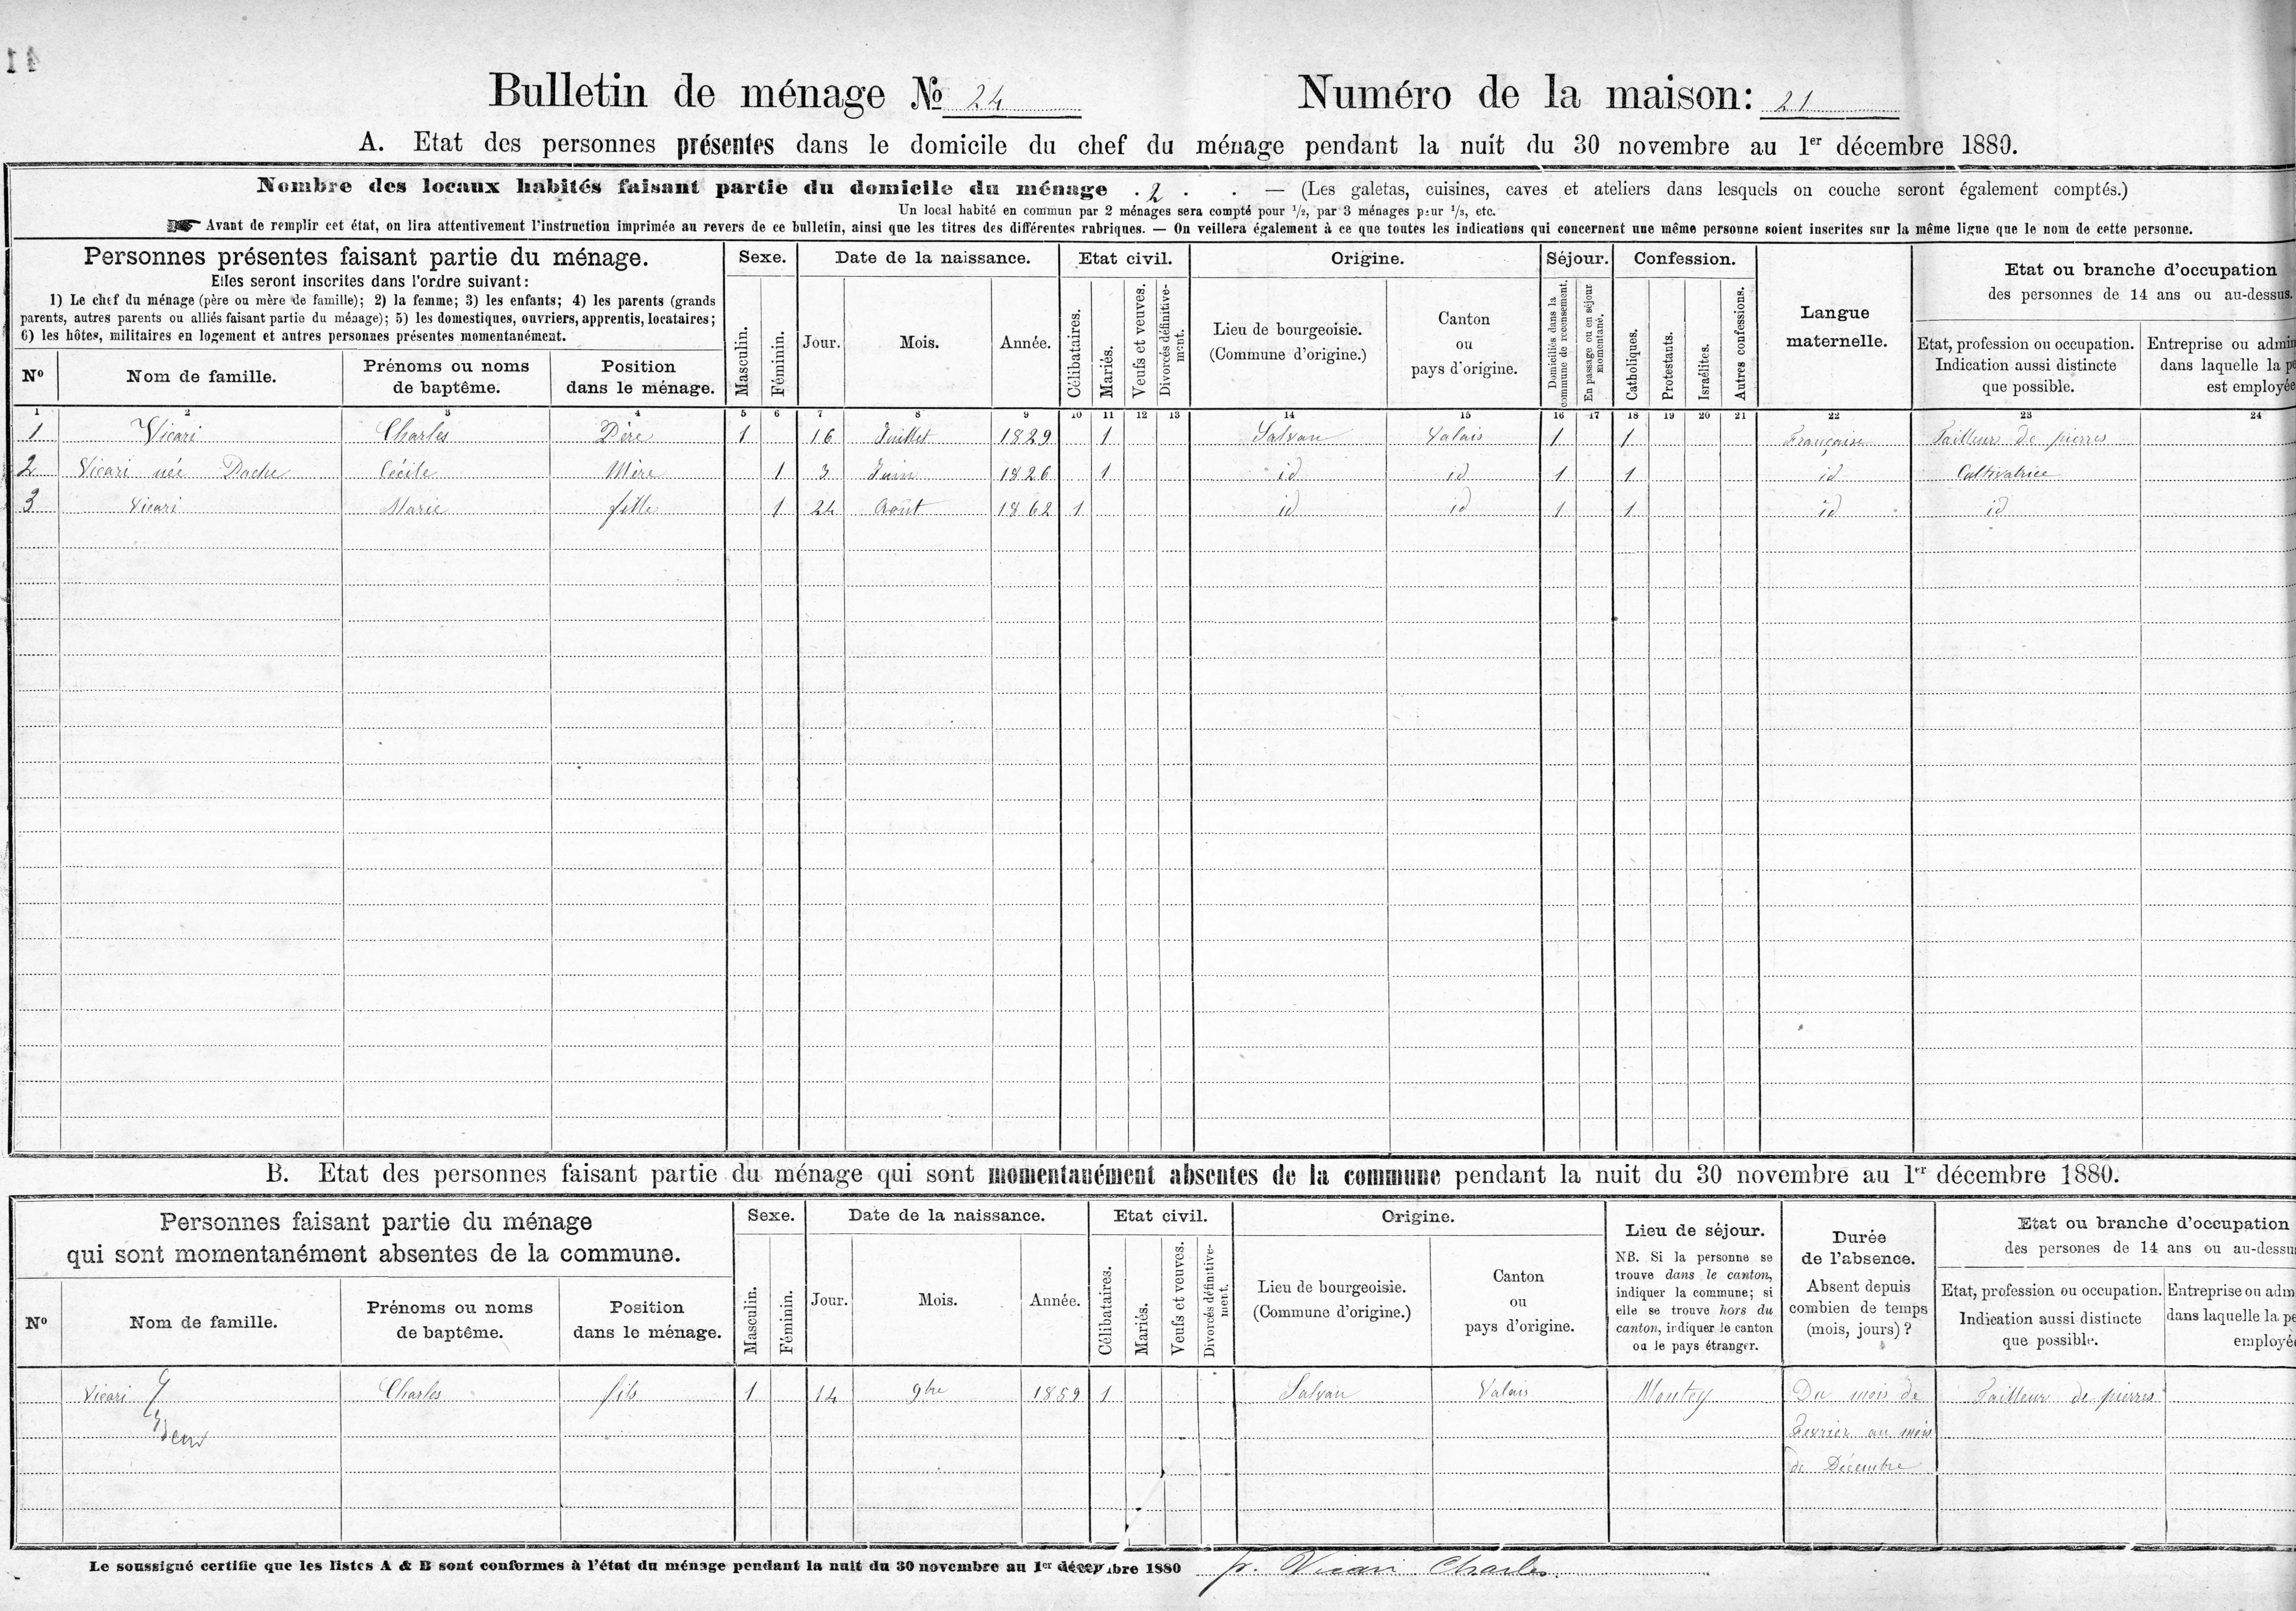 41
Bulletin de ménage № 24 Numéro de la maison: 21
A. Etat des personnes présentes dans le domicile du chef du ménage pendant la nuit du 30 novembre au 1er décembre 1880.
Nombre des locaux habités faisant partie du domicile du ménage . 2 . . — (Les galetas, cuisines, caves et ateliers dans lesquels on couche seront également comptés.)
Un local habité en commun par 2 ménages sera compté pour 1/2, par 3 ménages pour 1/3, etc.
Avant de remplir cet état, on lira attentivement l'instruction imprimée au revers de ce bulletin, ainsi que les titres des différentes rubriques. — On veillera également à ce que toutes les indications qui concernent une même personne soient inscrites sur la même ligne que le nom de cette personne.
Personnes présentes faisant partie du ménage.
Elles seront inscrites dans l'ordre suivant:
1) Le chef du ménage (père ou mère de famille); 2) la femme; 3) les enfants; 4) les parents (grands
parents, autres parents ou alliés faisant partie du ménage); 5) les domestiques, ouvriers, apprentis, locataires;
6) les hôtes, militaires en logement et autres personnes présentes momentanément.
No
Nom de famille.
Prénoms ou noms
de baptême.
Position
dans le ménage.
Sexe.
Masculin.
Féminin.
Date de la naissance.
Jour.
Mois.
Année.
Etat civil.
Célibataires.
Mariés.
Veufs et veuves.
Divorcés définitive-
ment.
Origine.
Lieu de bourgeoisie.
(Commune d'origine.)
Canton
ou
pays d'origine.
Séjour.
Domiciliés dans la
commune de recensement.
En passage ou en séjour
momentané.
Confession.
Catholiques.
Protestants.
Israélites.
Autres confessions.
Langue
maternelle.
Etat ou branche d'occupation
des personnes de 14 ans ou au-dessus.
Etat, profession ou occupation.
Indication aussi distincte
que possible.
Entreprise ou admin
dans laquelle la pe
est employée
1 2 3 4 5 6 7 8 9 10 11 12 13 14 15 16 17 18 19 20 21 22 23 24
1 Vicari Charles Père 1 16 Juillet 1829 1 Salvan Valais 1 1 Française Tailleur de pierres
2 Vicari née Dache Cécile Mère 1 3 Juin 1826 1 id id 1 1 id Cultivatrice
3 Vicari Marie fille 1 24 Août 1862 1 id id 1 1 id id
B. Etat des personnes faisant partie du ménage qui sont momentanément absentes de la commune pendant la nuit du 30 novembre au 1er décembre 1880.
Personnes faisant partie du ménage
qui sont momentanément absentes de la commune.
No
Nom de famille.
Prénoms ou noms
de baptême.
Position
dans le ménage.
Sexe.
Masculin.
Féminin.
Date de la naissance.
Jour.
Mois.
Année.
Etat civil.
Célibataires.
Mariés.
Veufs et veuves.
Divorcés définitive-
ment.
Origine.
Lieu de bourgeoisie.
(Commune d'origine.)
Canton
ou
pays d'origine.
Lieu de séjour.
NB. Si la personne se
trouve dans le canton,
indiquer la commune; si
elle se trouve hors du
canton, indiquer le canton
ou le pays étranger.
Durée
de l'absence.
Absent depuis
combien de temps
(mois, jours)?
Etat ou branche d'occupation
des persones de 14 ans ou au-dessu
Etat, profession ou occupation.
Indication aussi distincte
que possible.
Entreprise ou adm
dans laquelle la pe
employé
Vicari Charles fils 1 14 9bre 1859 1 Salvan Valais Montey Du mois de Tailleur de pierres
Fevrier au mois
de Décembre
Le soussigné certifie que les listes A & B sont conformes à l'état du ménage pendant la nuit du 30 novembre au 1er décembre 1880 p. Vicari Charles.